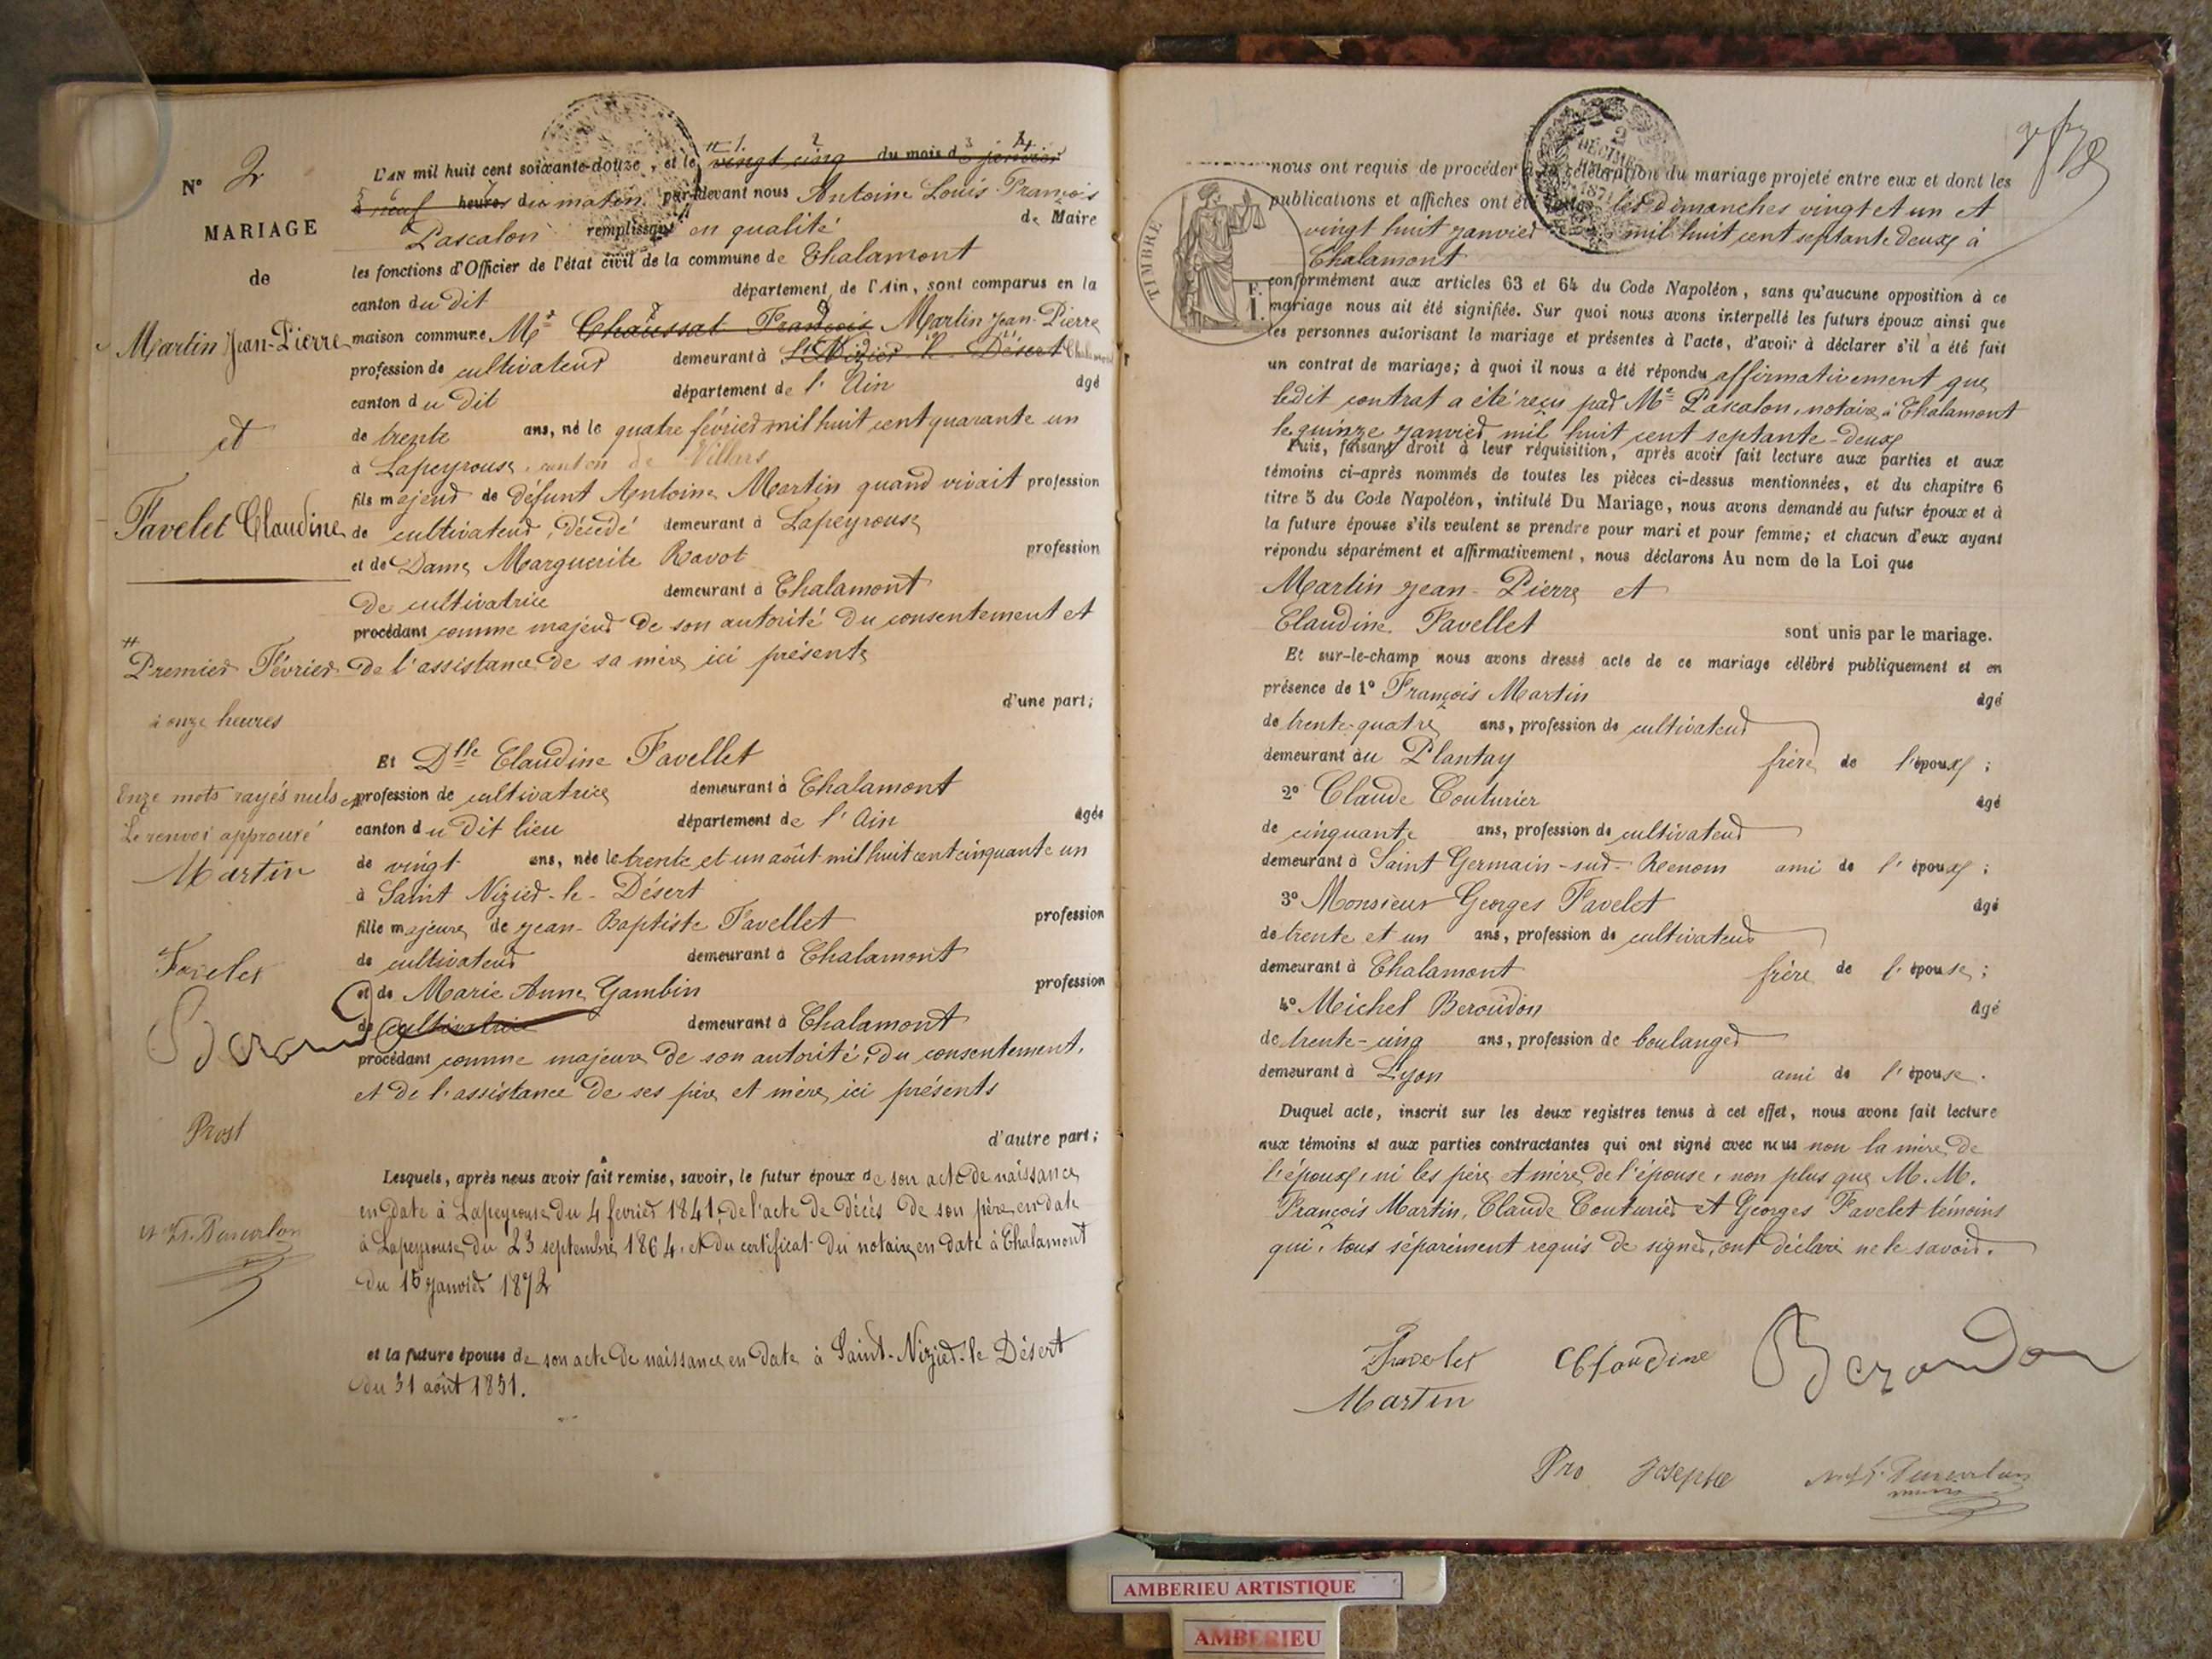 N° 2
MARIAGE
de
Martin Jean-Pierre
et
Favelet Claudine
#
Premier Février
à onze heures
Onze mots rayés nuls et
Le renvoi approuvé
Martin
Favelet
Beroudon
Prost
L'AN mil huit cent soixante-douze, et le # vingt cinq du mois de janvier
à neuf heures du matin par-devant nous Antoine Louis François
Pascalon remplissant en qualité de Maire
les fonctions d'Officier de l'état civil de la commune de Chalamont
canton du dit département de l'Ain, sont comparus en la
maison commune Mr Chaussat François Martin Jean-Pierre
profession de cultivateur demeurant à St Nizier le Désert Chalamont
canton du dit département de l'Ain âgé
de trente ans, né le quatre février mil huit cent quarante un
à Lapeyrouse, canton de Villars
fils majeur de défunt Antoine Martin quand vivait profession
de cultivateur, décédé demeurant à Lapeyrouse
et de Dame Marguerite Ravot profession
de cultivatrice demeurant à Chalamont
procédant comme majeur de son autorité du consentement et
de l'assistance de sa mère ici présente
d'une part;
Et Dlle Claudine Favellet
profession de cultivatrice demeurant à Chalamont
canton du dit lieu département de l'Ain âgée
de vingt ans, née le trente et un août mil huit cent cinquante un
à Saint Nizier-le-Désert
fille majeure de Jean-Baptiste Favellet profession
de cultivateur demeurant à Chalamont
et de Marie Anne Gambin profession
de cultivatrice demeurant à Chalamont
procédant comme majeure de son autorité, du consentement,
et de l'assistance de ses père et mère ici présents
d'autre part;
Lesquels, après nous avoir fait remise, savoir, le futur époux de son acte de naissance
en date à Lapeyrouse du 4 février 1841, de l'acte de décès de son père en date
à Lapeyrouse du 23 septembre 1864, et du certificat du notaire en date à Chalamont
du 15 janvier 1872
et la future épouse de son acte de naissance en date à Saint-Nizier-le Désert
du 31 août 1851.
nous ont requis de procéder à la célébration du mariage projeté entre eux et dont les
publications et affiches ont été faites les dimanches vingt et un et
vingt huit janvier mil huit cent septante deux à
Chalamont
conformément aux articles 63 et 64 du Code Napoléon, sans qu'aucune opposition à ce
mariage nous ait été signifiée. Sur quoi nous avons interpellé les futurs époux ainsi que
les personnes autorisant le mariage et présentes à l'acte, d'avoir à déclarer s'il a été fait
un contrat de mariage; à quoi il nous a été répondu affirmativement que
ledit contrat a été reçu par Me Pascalon, notaire à Chalamont
le quinze janvier mil huit cent septante-deux
Puis, faisant droit à leur réquisition, après avoir fait lecture aux parties et aux
témoins ci-après nommés de toutes les pièces ci-dessus mentionnées, et du chapitre 6
titre 5 du Code Napoléon, intitulé Du Mariage, nous avons demandé au futur époux et à
la future épouse s'ils veulent se prendre pour mari et pour femme; et chacun d'eux ayant
répondu séparément et affirmativement, nous déclarons Au nom de la Loi que
Martin Jean-Pierre et
Claudine Favellet sont unis par le mariage.
Et sur-le-champ nous avons dressé acte de ce mariage célébré publiquement et en
présence de 1° François Martin âgé
de trente-quatre ans, profession de cultivateur
demeurant au Plantay frère de l'époux;
2° Claude Couturier âgé
de cinquante ans, profession de cultivateur
demeurant à Saint Germain-sur-Renom ami de l'époux;
3° Monsieur Georges Favelet âgé
de trente et un ans, profession de cultivateur
demeurant à Chalamont frère de l'épouse;
4° Michel Beroudon âgé
de trente-cinq ans, profession de boulanger
demeurant à Lyon ami de l'épouse.
Duquel acte, inscrit sur les deux registres tenus à cet effet, nous avons fait lecture
aux témoins et aux parties contractantes qui ont signé avec nous non la mère de
l'époux, ni les père et mère de l'épouse, non plus que M.M.
François Martin, Claude Couturier et Georges Favelet témoins
qui, tous séparément requis de signer, ont déclaré ne le savoir.
Favelet Claudine Beroudon
Martin
Pro Josephe
TIMBRE
AMBERIEU ARTISTIQUE
AMBERIEU